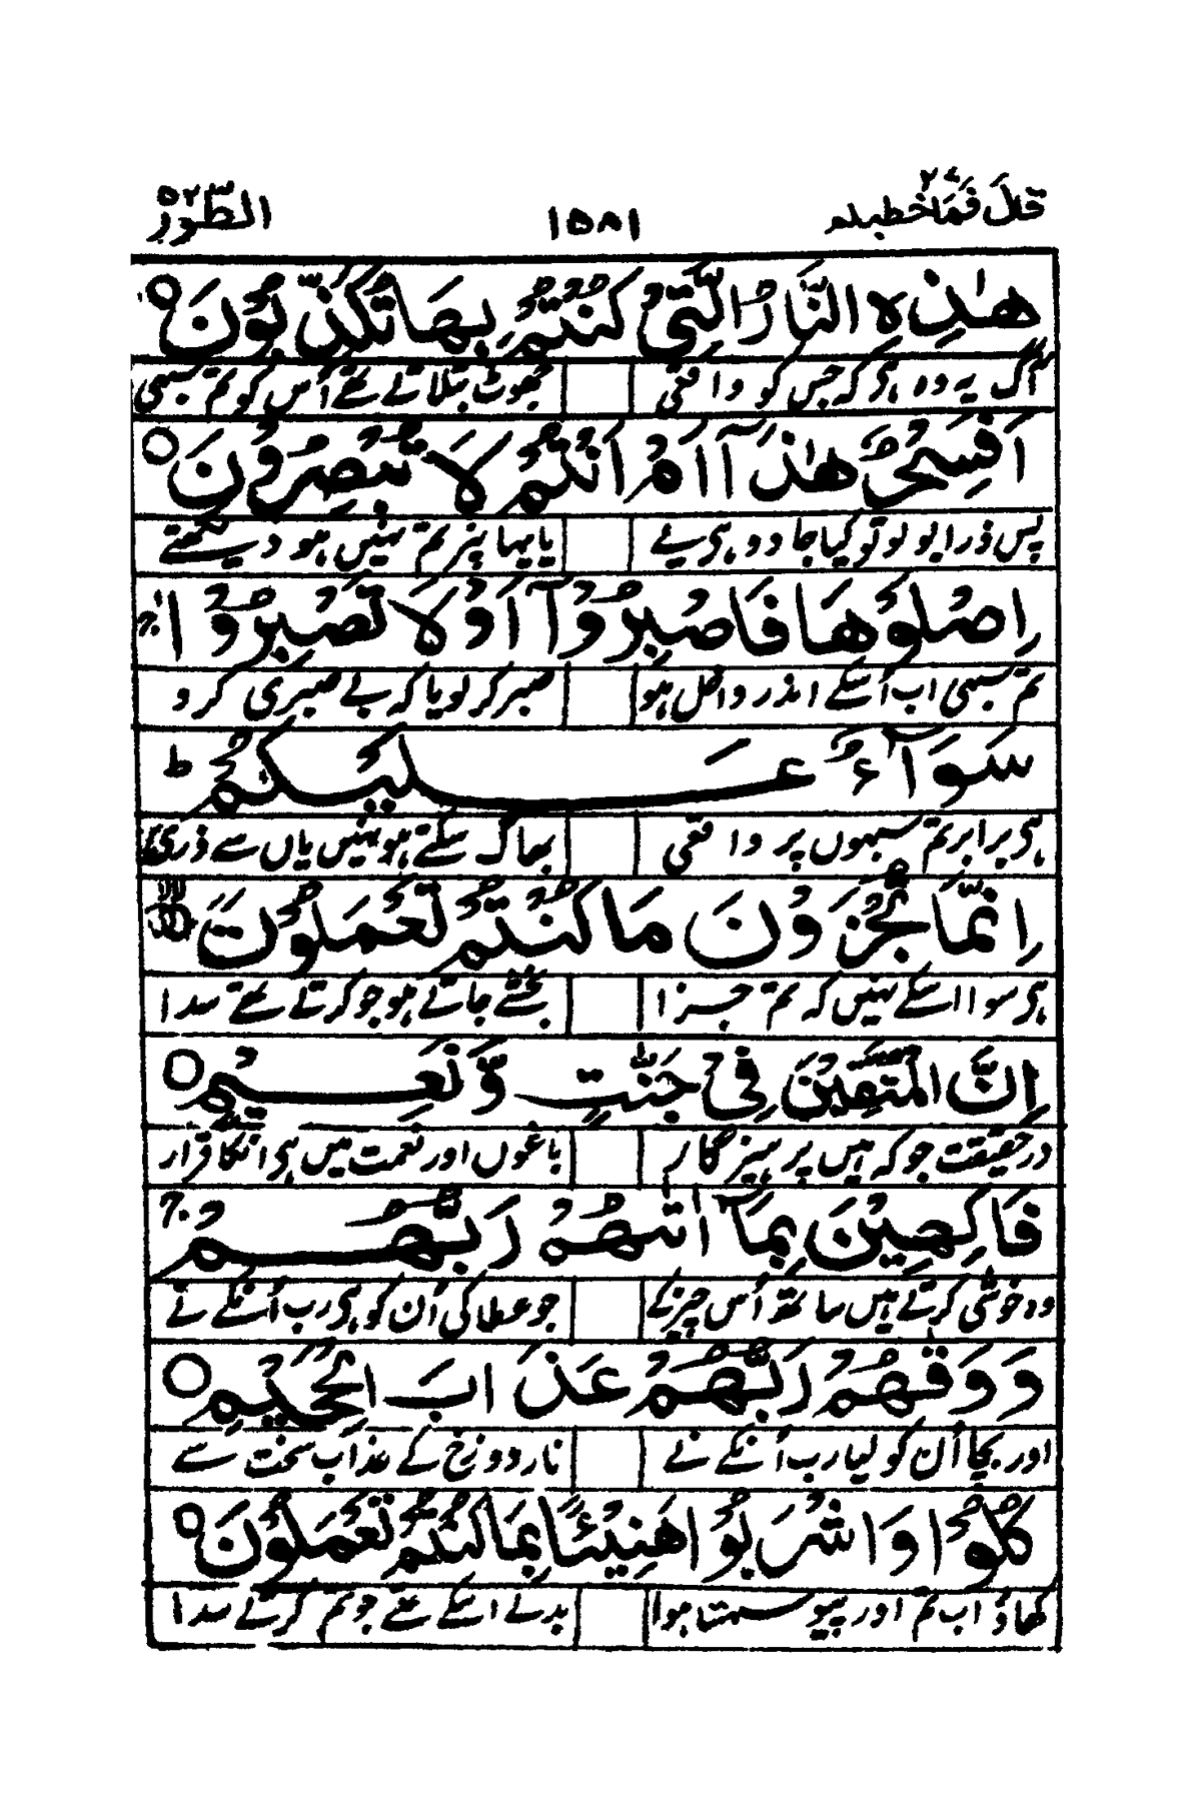 قال فما خطبکم ۲۷ ۱۵۸۱ الطور ۵۲
هٰذِهِ النَّارُ الَّتِیْ كُنْتُمْ بِهَا تُكَذِّبُوْنَ ○
آگ یہ وہ ہی کہ جس کو واقعی جھوٹ بتلاتے تھے اُس کو تم سبھی
اَفَسِحْرٌ هٰذَآ اَمْ اَنْتُمْ لَا تُبْصِرُوْنَ ○
پس ذرا بولو تو کیا جادو ہی یے یا یہا پر تم نہیں ہو دیکھتے
اِصْلَوْهَا فَاصْبِرُوْآ اَوْ لَا تَصْبِرُوْا ۚ
تم سبھی اب اُسکے اندر داخل ہو صبر کر لو یا کہ بے صبری کرو
سَوَآءٌ عَلَیْكُمْ ط
ہی برابر تم سبھوں پر واقعی بھاگ سکتے ہو نہیں یاں سے ذری
اِنَّمَا تُجْزَوْنَ مَا كُنْتُمْ تَعْمَلُوْنَ
ہی سوا اسکے نہیں کہ تم جزا بخشے جاتے ہو جو کرتے تھے سدا
اِنَّ الْمُتَّقِیْنَ فِیْ جَنّٰتٍ وَّ نَعِیْمٍ ○
درحقیقت جو کہ ہیں پرہیزگار باغوں اور نعمت میں ہی انکا قرار
فَاكِهِیْنَ بِمَآ اٰتٰىهُمْ رَبُّهُمْ ۚ
وہ خوشی کرتے ہیں ساتھ اُس چیز کے جو عطا کی اُن کو ہی رب اُنکے نے
وَ وَقٰىهُمْ رَبُّهُمْ عَذَابَ الْجَحِیْمِ ○
اور بچا اُن کو لیا رب اُنکے نے نار دوزخ کے عذاب سخت سے
كُلُوْا وَ اشْرَبُوْا هَنِیْٓئًۢا بِمَا كُنْتُمْ تَعْمَلُوْنَ ○
کھاؤ اب تم اور پیو سہتا ہوا بدلے اسکے تھے جو تم کرتے سدا